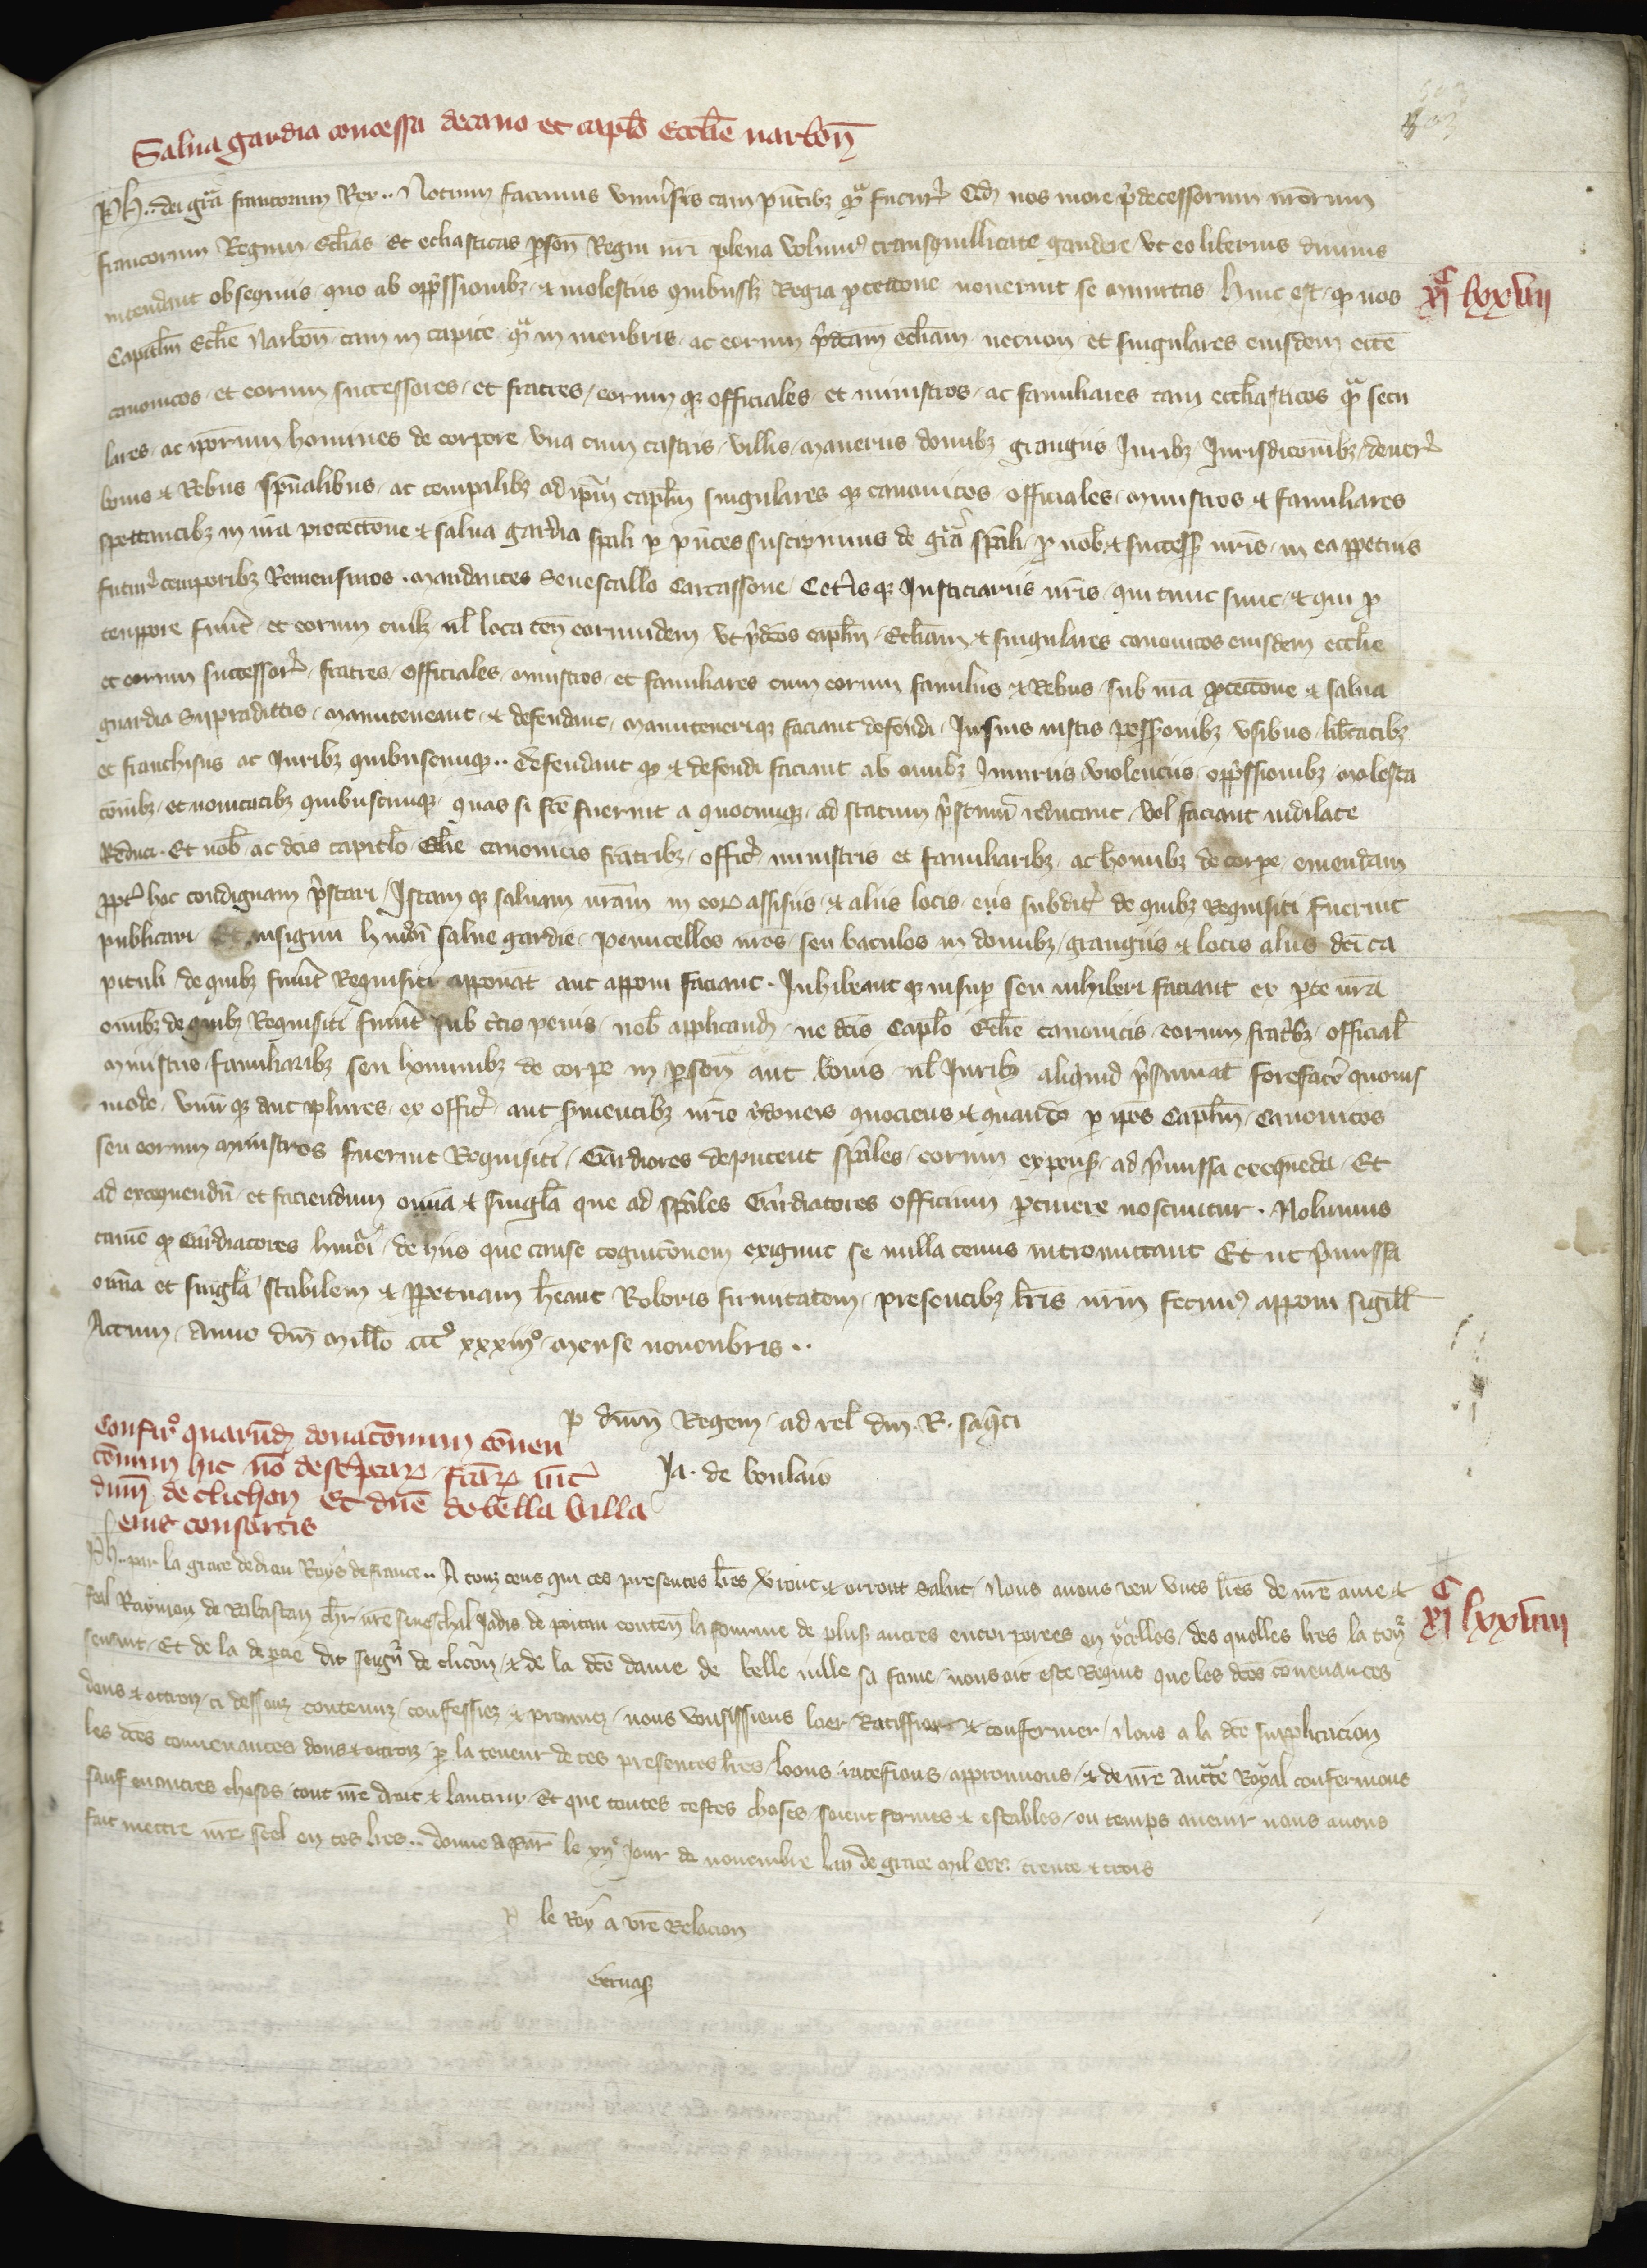 Salua gardia concessa decano et caplo Ecclie narbon
Ph.. dei gra francorum Rex.. Notum facimus vniusis tam pntibz qa futur Qd nos more pdecessorum nrorum
francorum Regum Eclias et ecliasticas pson Regni nri plena volum9 transquillitate gaudere vt eo liberius diuinis
intendant obsequiis quo ab oppssionibz et molestiis quibuslz Regia ptectione nouerint se munitas hinc est qd nos
Capitlm Eclie Narbon tam in capite qa in menbris ac eorum pdcam ecliam necnon et singulares eiusdem eccie
canonicos et eorum successores et fratres eorum qz officiales et ministros ac familiares tam eccliasticos qa secu
lares ac ipsorum homines de corpore vna cum castris villis maneriis domibz grangiis Juribz Jurisdiconibz deuer
bonis et Rebus spualibus ac tempalibz ad ipm caplm singulares qz canonicos officiales ministros et familiares
spectantibz in nra protectione et salua gardia spali p pntes suscipimus de gra spali p nob et success nris in ea ppetuis
futur temporibz Remensuros mandantes Senescallo Carcassone Cetisqz Justiciariis nris qui tunc sunt et qui p
tenppore fuint et eorum cuilz ul loca ten eorumdem vt pdcos caplm Ecliam et singulares canonicos eiusdem ecclie
et eorum successor fratres officiales ministros et familiares cum eorum familiis et Rebus sub nra ptectione et salua
guardia Suppradictis manuteneant et defendant manutenerique faciant defendi In suis iustis possessionibz vsibus libtatibz
et franchisiis ac Juribz quibuscunqz.. Defendant qz et defendi faciant ab omibz Iniuriis violenciis oppssionibz molesta
conibz et nouitatibz quibuscunqz quas si fce fuerint a quocunqz ad statum pstinum reducant vel faciant indilate
Reduci Et nob ac dcis capitlo Eclie canonicis fratribz offic ministris et familiaribz ac homibz de corpe emendam
ppt hoc condignam pstari Istam qz saluam nram in eor assisiis et aliis locis eis subdit de quibz requisiti fuerint
publicari Et insignum hmoi salue gardie penucellos nros seu baculos in domibz grangiis et locis aliis dci ca
pituli de quibz fuint Requisiti apponat aut apponi faciant Inhibeant qz insup seu inhiberi faciant ex pte nra
omibz de quibz Requisiti fuint sub ctis penis nob applicand ne dcis Caplo Eclie canonicis eorum fratribz official
ministris familiaribz seu hominibz de corpe in pson aut bonis ul Juribz aliquid psumat forefacere quouis
modo vnu qz aut plures ex offic aut suientibz nris ydoneis quociens et quando p ipos Caplm Canonicos
seu eorum ministros fuerint Requisiti Gardiores deputent spales eorum expens ad pmissa exequeda Et
ad exequendu et faciendum omia et singla que ad spales Gardiatores officium ptinere noscuntur Nolumus
tame qd Gardiatores hmoi de hiis que cause cogniconem exigunt se nulla tenus intromittant Et ut pmissa
omia et singla stabilem et ppetuam heant Roboris firmitatem presentibz lris nrm fecim9 apponi sigill
Actum Anno dni millo ccc xxxiii mense nouenbris..
p dnm Regem ad rel dni R. saqti
Ja. de boulaio
Confir quarud donaconum conuen
conum hic no descptar factar int
dnm de clichon Et dne de bella villa
eius consortis
Ph.. par la grace dedieu Roys de france.. A touz ceus qui ces presentes lres verront et orront salut Nous auons veu vnes lres de nre ame et
feal Raymon de Rabastan chr nre seneschal Jadis de poitou conten la somme de plus autres encorporees en ycelles des quelles lres la ten
sensuit Et de la deptie dit seign de clicon et de la dce dame de belle uille sa fame nous ait este Requis que les dces conuenances
dons et ottroiz ci dessouz contenuz confessiez et prouuez nous vousissiens loer Ratiffier et confermer Nous a la dce supplicacion
les dces conuenances dons et ottroiz p la teneur de ces presentes lres loons ratefions approuuons et de nre aucte Royal confermons
sauf en autres choses tout nre droit et lautrui Et que toutes cestes choses soient fermes et estables ou temps auenir nous auons
fait mettre nre seel en ces lres.. donne a par le xii jour de nouembre lan de grace mil ccc. trente et trois
p le Roy a vre Relacion
xi lxxvii
xi lxxviii